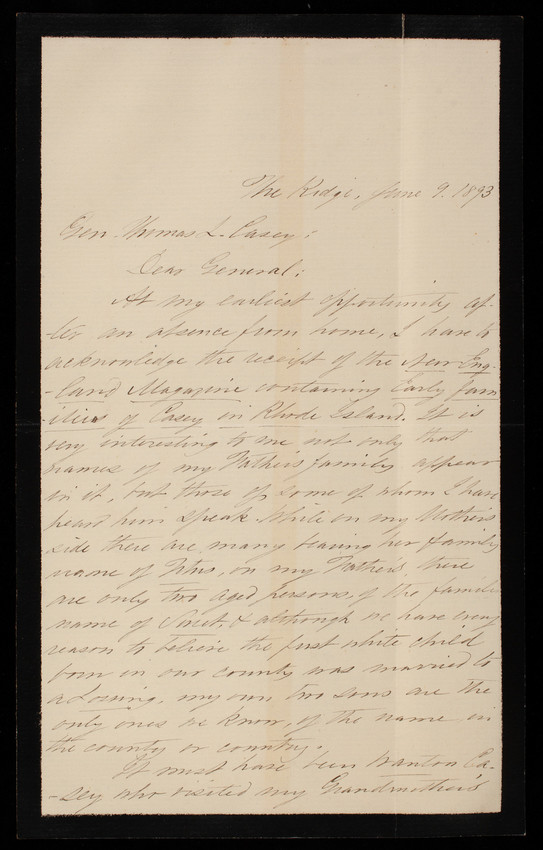 The Ridge, June 9. 1893
Gen. Thomas L. Casey;
Dear General;
At my earliest opportunity af-
ter an absence from home, I have to
acknowledge the receipt of the New Eng-
-land Magazine containing Early fam
ilies of Casey in Rhode Island. It is
very interesting to me not only that
names of my Father's family appear
in it, but those of some of whom I have
heard him speak. While on my Mother's
side there are many bearing her family
name of Titus, on my Father's, there
are only two aged persons, of the family
name of &  although we have every
reason to believe the first white child
born in our county was married to
a  my own two sons are the
only ones we know, of the name in
the county or country.
It must have been Wanton Ca-
-sey who visited my Grandmother's